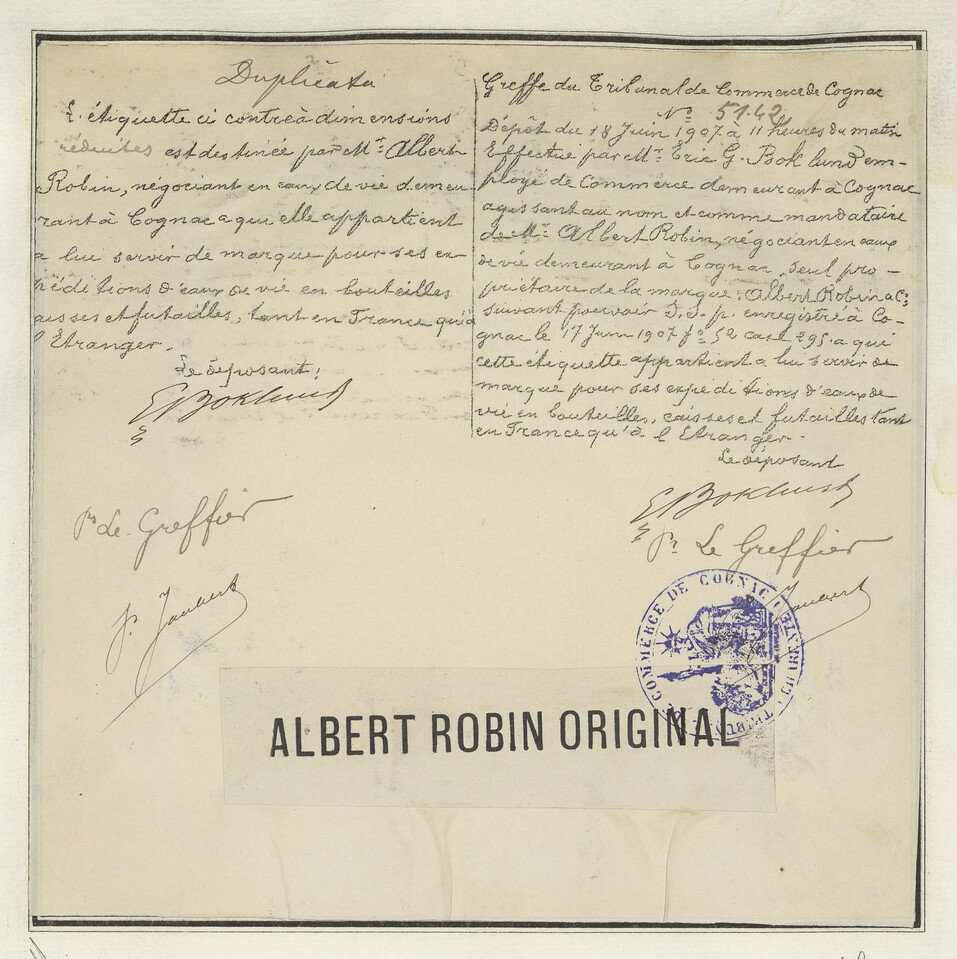 Duplicata
L'étiquette ci contre à dimensions
réduites est destinée par Mr. Albert
Robin, négociant en eaux de vie demeu-
rant à Cognac a qui elle appartient
a lui servir de marque pour ses ex-
péditions d'eaux de vie en bouteilles
caisses et futailles, tant en France qu'à
l'Etranger.
Le déposant:
E Boklund
Pr Le Greffier
J. Jaubert
Greffe du Tribunal de Commerce de Cognac
No 5142
Dépôt du 18 Juin 1907 à 11 heures du matin
Effectué par Mr. Eric G. Boklund em-
ployé de Commerce demeurant à Cognac
agissant au nom et comme mandataire
de Mr. Albert Robin, négociant en eaux
de vie demeurant à Cognac, seul pro-
priétaire de la marque: Albert Robin & Co
suivant pouvoir S.S.p. enregistré à Co-
gnac le 17 Juin 1907 fo 52 case 295. a qui
cette étiquette appartient a lui servir de
marque pour ses expeditions d'eaux de
vie en bouteilles, caisses et futailles tant
en France qu'à l'Etranger.
Le déposant
E Boklund
Pr Le Greffier
Jaubert
TRIBUNAL DE COMMERCE DE COGNAC (CHARENTE)
ALBERT ROBIN ORIGINAL